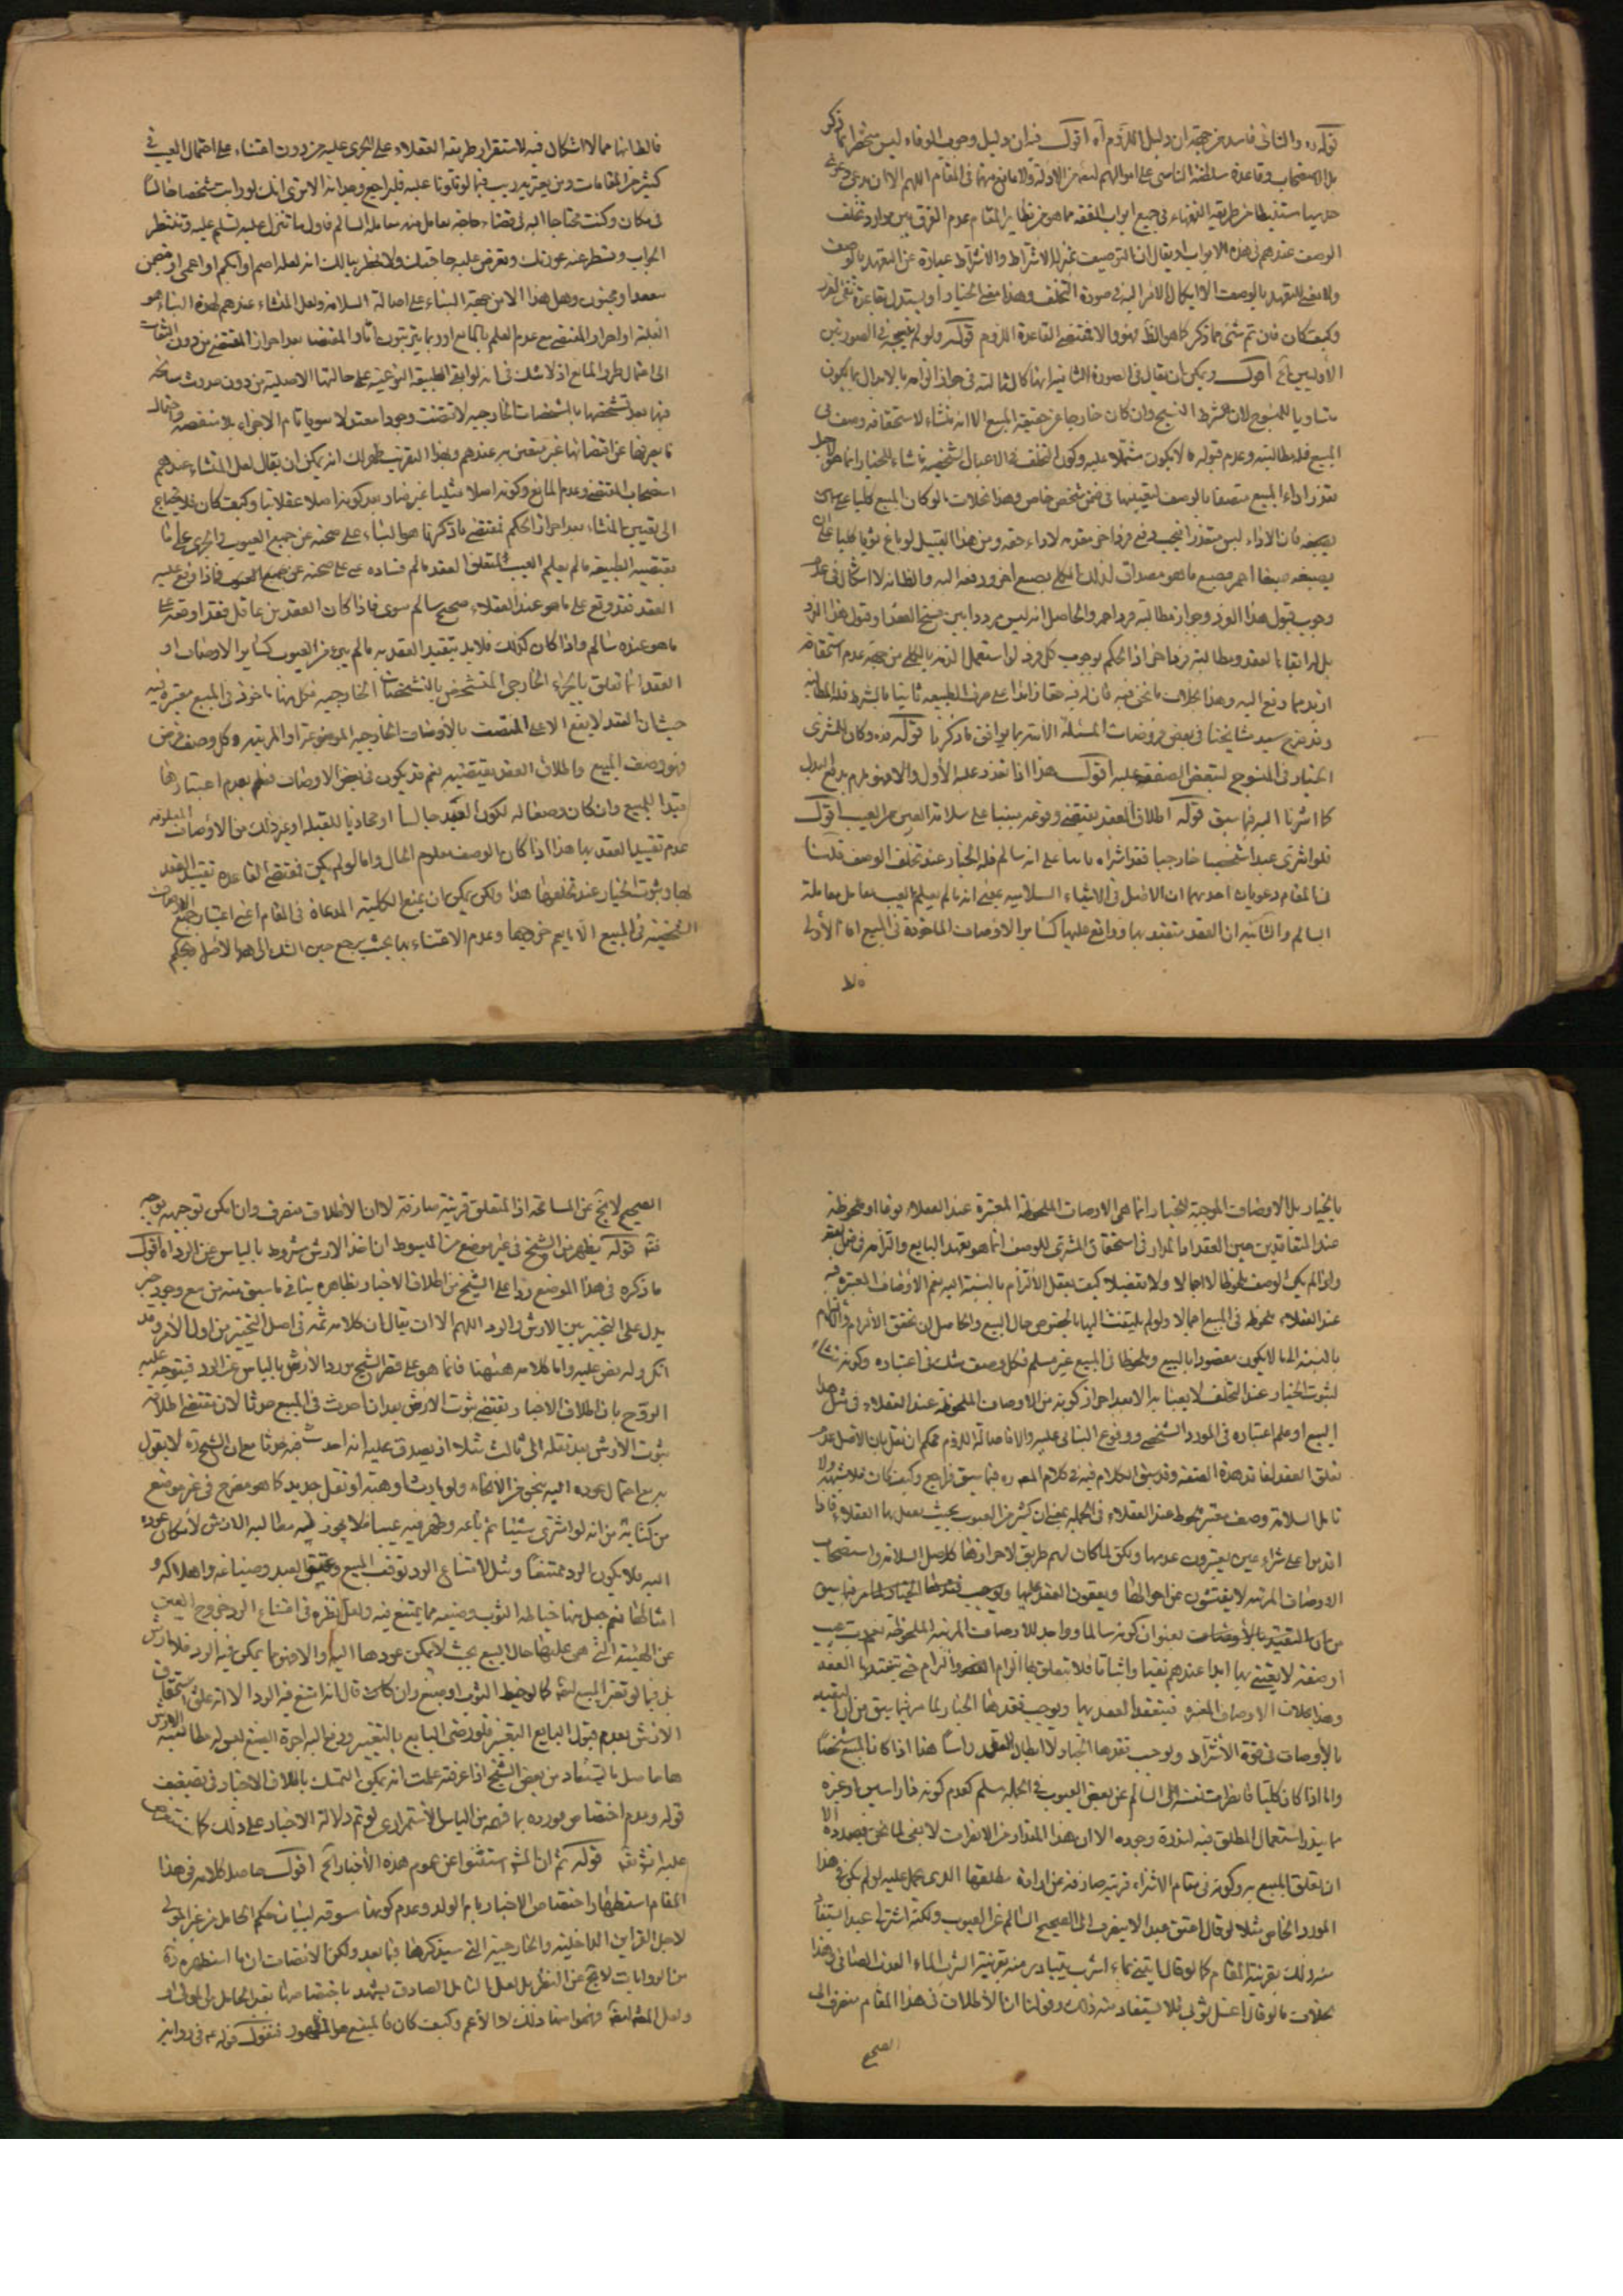 قوله ره والثاني فاسد من جهة ان دليل اللزوم آه اقول فيه ان دليل وجوب الوفاء ليس منحصرا بما ذكر
بل الاستصحاب وقاعدة سلطنة الناس على اموالهم ايضا من الادلة ولا مانع منهما في المقام اللهم الا ان يدعى
من طريقة الفقهاء في جميع ابواب الفقه مما هو من نظاير المقام عدم الفرق بين موارد تخلف
الوصف عندهم في هذه الابواب او يقال ان التوصيف بمنزلة الاشتراط والاشتراط عبارة عن التعهد بالوصف
ولا معنى للتعهد بالوصف الا ايكال الامر اليه في صورة التخلف وهذا معنى الخيار او يستدل بقاعدة نفى الضرر
وكيف كان فان تم شئ مما ذكر كما هو الظ فهو والا فمقتضى القاعدة اللزوم قوله ولو لم
الاوليين آه اقول ويمكن ان يقال في الصورة الثانية ايضا كالثالثة في جواز الزامه بالابدال بما يكون
مساويا للمنسوج لان شرط النسج وان كان خارجا عن حقيقة المبيع الا انه منشاء لاستحقاقه وصف في
المبيع فله مطالبته وعدم قبوله ما لا يكون مشتملا عليه وكون التخلف في الاعيان الشخصية ناشاء للخيار انما هو لاجل
تعذر اداء المبيع متصفا بالوصف لتعينها في ضمن شخص خاص وهذا بخلاف ما لو كان المبيع كليا
فان الاداء ليس متعذرا فيجب دفع فرد اخر مقدمة لاداء حقه ومن هذا القبيل لو باع ثوبا كليا على ان
يصبغه صبغا احمر فصبغ ما هو مصداق لذلك الكلى بصبغ اخر ودفعه اليه والظ انه لا اشكال في عدم
وجوب قبول هذا الفرد وجواز مطالبته فردا احمر والحاصل انه ليس مرددا بين فسخ العقد او قبول هذا الفرد
بل له ابقاء العقد ومطالبة فرد اخر اذ الحكم بوجوب كل فرد
ازيد مما دفع اليه وهذا بخلاف ما نحن فيه فان له فيه حقا زائدا على صرف الطبيعة ثابتا بالشرط فله المطالبة
وقد صرح سيد مشايخنا في بعض فروضات المسئلة الاتية بما يوافق ما ذكرنا قوله ره وكان للمشترى
الخيار في المنسوج لتبعض الصفقة عليه اقول هذا اذا تعذر عليه الاول والا فهو ملزم بدفع البدل
كما اشرنا اليه فيما سبق قوله اطلاق العقد يقتضى وقوعه مبنيا على سلامة العين من العيب اقول
فلو اشترى عبدا شخصيا خارجيا فقد اشتراه بانيا على انه سالم فله الخيار عند تخلف الوصف قلت
في المقام دعويان احدهما ان الاصل في الاشياء السلامة بمعنى انه ما لم يعلم العيب يعامل معاملة
السالم والثانية ان العقد متقيد بها وواقع عليها كساير الاوصاف الماخوذة في المبيع اما الاولى
فالظ انها مما لا اشكال فيه لاستقرار طريقة العقلاء على الجرى عليه من دون اعتناء على احتمال العيب في
كثير من المقامات ومن يعتريه ريب فيما لو تلونا عليه فليراجع وجدانه الا ترى انك لو رايت شخصا جالسا
في مكان وكنت محتاجا اليه في قضاء حاجة تعامل معه معاملة السالم فاول ما تنزل عليه تسلم عليه وتنتظر
الجواب وتعرض عليه حاجتك ولا يخطر ببالك انه لعله اصم او ابكم او اعمى او
مقعد او مجنون وهل هذا الا من جهة البناء على اصالة السلامة ولعل المنشاء عندهم لهذه البناء هو
الغلبة او احراز المقتضى مع عدم العلم بالمانع اذ ربما يرتبون اثار المقتضا بعد احراز المقتضى من دون التفات
الى احتمال طرو المانع اذ لا شك في انه لو ابقى الطبيعة النوعية على حالتها الاصلية من دون حدوث سانحة
فيها بعد تشخصها بالمشخصات الخارجية لاقتضت وجودا معتدلا سويا تام الاجزاء بلا منقصة واحتمال
ما يعوقها عن اقتضائها غير معتنى به عندهم وبهذا التقريب ظهر لك انه يمكن ان يقال لعل المنشاء عندهم
استصحاب المقتضى وعدم المانع وكونه اصلا مثبتا غير ضار بعد كونه اصلا عقلائيا وكيف كان فلا يحتاج
الى تعيين المنشاء بعد احراز الحكم فمقتضى ما ذكرنا هو البناء على صحته عن جميع العيوب والجرى على ما
يقتضيه الطبيعة ما لم يعلم العيب فمتعلق العقد ما لم يعلم فساده على صحته عن جميع العيوب فاذا وقع عليه
العقد فقد وقع على ما هو عند العقلاء صحيح سالم سوى فاذا كان العقد من عاقل فقد اوقعه على
ما هو عنده سالم واذا كان كذلك فلا بد بتقييد العقد به ما لم يتبرء من العيوب كساير الاوصاف او
العقد انما تعلق بالجزئي الخارجى المتشخص بالتشخصات الخارجية فكل منها ماخوذ في المبيع معتبرة فيه
حيث ان العقد لا يقع الا على المتصف بالاوصاف الخارجية الموجودة او المرتبة وكل وصف فرض
فهو وصف المبيع واطلاق العقد يقتضيه نعم قد يكون في بعض الاوصاف فعلم بعدم اعتبارها
قيدا للمبيع وان كان وصفا له لكون العبد جالسا او محاذيا للقبلة او غير ذلك من الاوصاف المعلومة
عدم تقييد العقد بها هذا اذا كان الوصف معلوم الحال واما لو لم يكن فمقتضى القاعدة تقييد العقد
بها وثبوت الخيار عند تخلفها هذا ولكن يمكن ان يمنع الكلية المدعاة في المقام اعنى اعتبار جميع الاوصاف
الشخصية في المبيع الا ما يعلم خروجها وعدم الاعتناء بها بحيث يرجع حين الشك الى هذا الاصل ويحكم
بالخيار بل الاوصاف الموجبة للخيار انما هى الاوصاف الملحوظة المعتبرة عند العقلاء نوعا او ملحوظة
عند المتعاقدين حين العقد اما المدار في استحقاق المشترى للوصف انما هو تعهد البايع والتزامه في ضمن العقد
واذا لم يكن الوصف ملحوظا لا اجمالا ولا تفصيلا كيف يعقل الالتزام بالنسبة اليه نعم الاوصاف المعتبرة فيه
عند العقلاء ملحوظة في المبيع اجمالا ولو لم يلتفت اليها بالخصوص حال البيع والحاصل ان تحقق الالزام والالتزام
بالنسبة الى ما لا يكون مقصودا بالبيع وملحوظا في المبيع غير مسلم فكل وصف شك في اعتباره وكونه منشاء
لثبوت الخيار عند التخلف لا يعبا به الا بعد احراز كونه من الاوصاف الملحوظة عند العقلاء في مثل هذا
البيع او علم اعتباره في المورد الشخصى ووقوع البناء عليه والا فاصالة اللزوم محكم ان نقل بان الاصل عدم
تعلق العقد لفاقد هذه الصفة وقد سبق الكلام فيه في كلام المص ره فيما سبق فراجع وكيف كان فلا شبهة ولا
تامل السلامة وصف معتبر ملحوظ عند العقلاء في الجملة بمعنى ان كثير من العيوب بحيث يعمل بها العقلاء فاذا
اقدموا على شراء عين يعتبرون عدمها ولكن لما كان لهم طريق لاحرازها كاصل السلامة واستصحاب
الاوصاف المرتبة لا يفتشون عن احوالها ويعقدون العقد عليها ويوجب فقدها الخيار لما مر فيما سبق
من ان التقييد بالاوصاف بعنوان كونه سالما وواجدا للاوصاف المرتبة الملحوظة نعم رب عيب
او صفة لا يعتنى بها ابدا عندهم نفيا واثباتا فلا يتعلق بها الزام والتزام حتى يتقيد بها العقد
وهذا بخلاف الاوصاف المعتبرة فيتقيد العقد بها ويوجب فقدها الخيار لما مر فيما سبق من ان التقييد
بالاوصاف في قوة الاشتراط ويوجب تعذرها الخيار لا ابطال العقد راسا هذا اذا كان المبيع شخصيا
واما اذا كان كليا فانصرافه الى السالم عن بعض العيوب في الجملة مسلم كعدم كونه ذا راسين او غيره
مما يندر استعمال المطلق فيه لندرة وجوده الا ان هذا المقدار من الانصراف لا ينفى لما نحن بصدده الا
ان تعلق المبيع به وكونه في مقام الاشتراء قرينة صارفة عن ارادة مطلقها الذى يحمل عليه لو لم يكن في هذا
المورد الخاص مثلا لو قال اعتق عبدا لا ينصرف الى الصحيح السالم عن العيوب ولكنه اشتر لى عبدا يستفاد
منه ذلك بقرينة المقام كما لو قال ايتنى بماء اشرب يتبادر منه بقرينة الشرب الماء العذب الصافى وهذا
بخلاف ما لو قال اغسل ثوبى فلا يستفاد منه ذلك وقولنا ان الاطلاق في هذا المقام منصرف الى
الصحيح
الصحيح لا يخ عن المسامحة اذ المتعلق قرينة صارفة لا ان الاطلاق منصرف وان امكن توجيهه بوجه
فتد قوله يظهر من الشيخ في غير موضع من المبسوط ان اخذ الارش مشروط بالياس عن الرد اه اقول
ما ذكره في هذا الموضع ردا على الشيخ من اطلاق الاخبار بظاهره ينافى ما سبق منه من منع وجود خبر
يدل على التخيير بين الارش والرد اللهم الا ان يقال ان كلامه ثمة في اصل التخيير من اول الامر وقد
انكر وله نص عليه واما كلامه هيهنا فانما هو على قصر الشيخ مورد الارش بالياس عن الرد فيتوجه عليه
الرد ح بان اطلاق الاخبار يقتضى ثبوت الارش بعد ان احدث في المبيع حدثا لان مقتضى اطلاقه
ثبوت الارش بعد نقله الى ثالث مثلا اذ يصدق عليه انه احدث فيه حدثا مع ان الشيخ ره لا يقول
به مع احتمال عوده اليه بنحو من الانحاء ولو بارث او هبة او نقل جديد كما هو مصرح في غير موضع
من كتابه من انه لو اشترى شيئا ثم باعه وظهر فيه عيب فلا يجوز له مطالبة الارش لامكان عوده
اليه فلا يكون الرد ممتنعا ومثل لامتناع الرد بوقف المبيع وعتق العبد وضياعه واهلاكه و
امثالها نعم جعل منها خياطة الثوب وصبغه مما يمتنع فيه ولعل نظره في امتناع الرد خروج العين
عن الهيئة التى هى عليها حال البيع بحيث لا يمكن عودها اليه والا فهو مما يمكن فيه الرد فلا ارش
بل فيما لو تغير المبيع كما لو خيط الثوب او صبغ وان كان قال انه امتنع فيه الرد الا انه علق استحقاق
الارش بعدم قبول البايع التغير فلو رضى البايع بالتغيير ودفع اليه اجرة الصبغ ليس له مطالبة الارش
هذا حاصل ما يستفاد من بعض الشيخ اذا عرفته علمت انه يمكن التمسك باطلاق الاخبار في تضعيف
قوله وعدم اختصاص مورده بما فهمه من الياس الاستمرارى لو تم دلالة الاخبار على ذلك كما ستعرض
عليه انش تع قوله ثم ان المش استثنوا عن عموم هذه الاخبار الخ اقول حاصل كلامه في هذا
المقام استظهار اختصاص الاخبار بام الولد وعدم كونها مسوقة لبيان حكم الحامل من غير المولى
لاجل القراين الداخلية والخارجية التى سيذكرها فيما بعد ولكن الانصاف ان ما استظهره ره
من الروايات لا يخ عن النظر بل لعل التامل الصادق يشهد باختصاصها بغير الحامل من المولى او
ولعل المش ايضا فهموا منها ذلك لا الاعم وكيف كان فالمتبع هو الظهور فنقول قوله ع في رواية